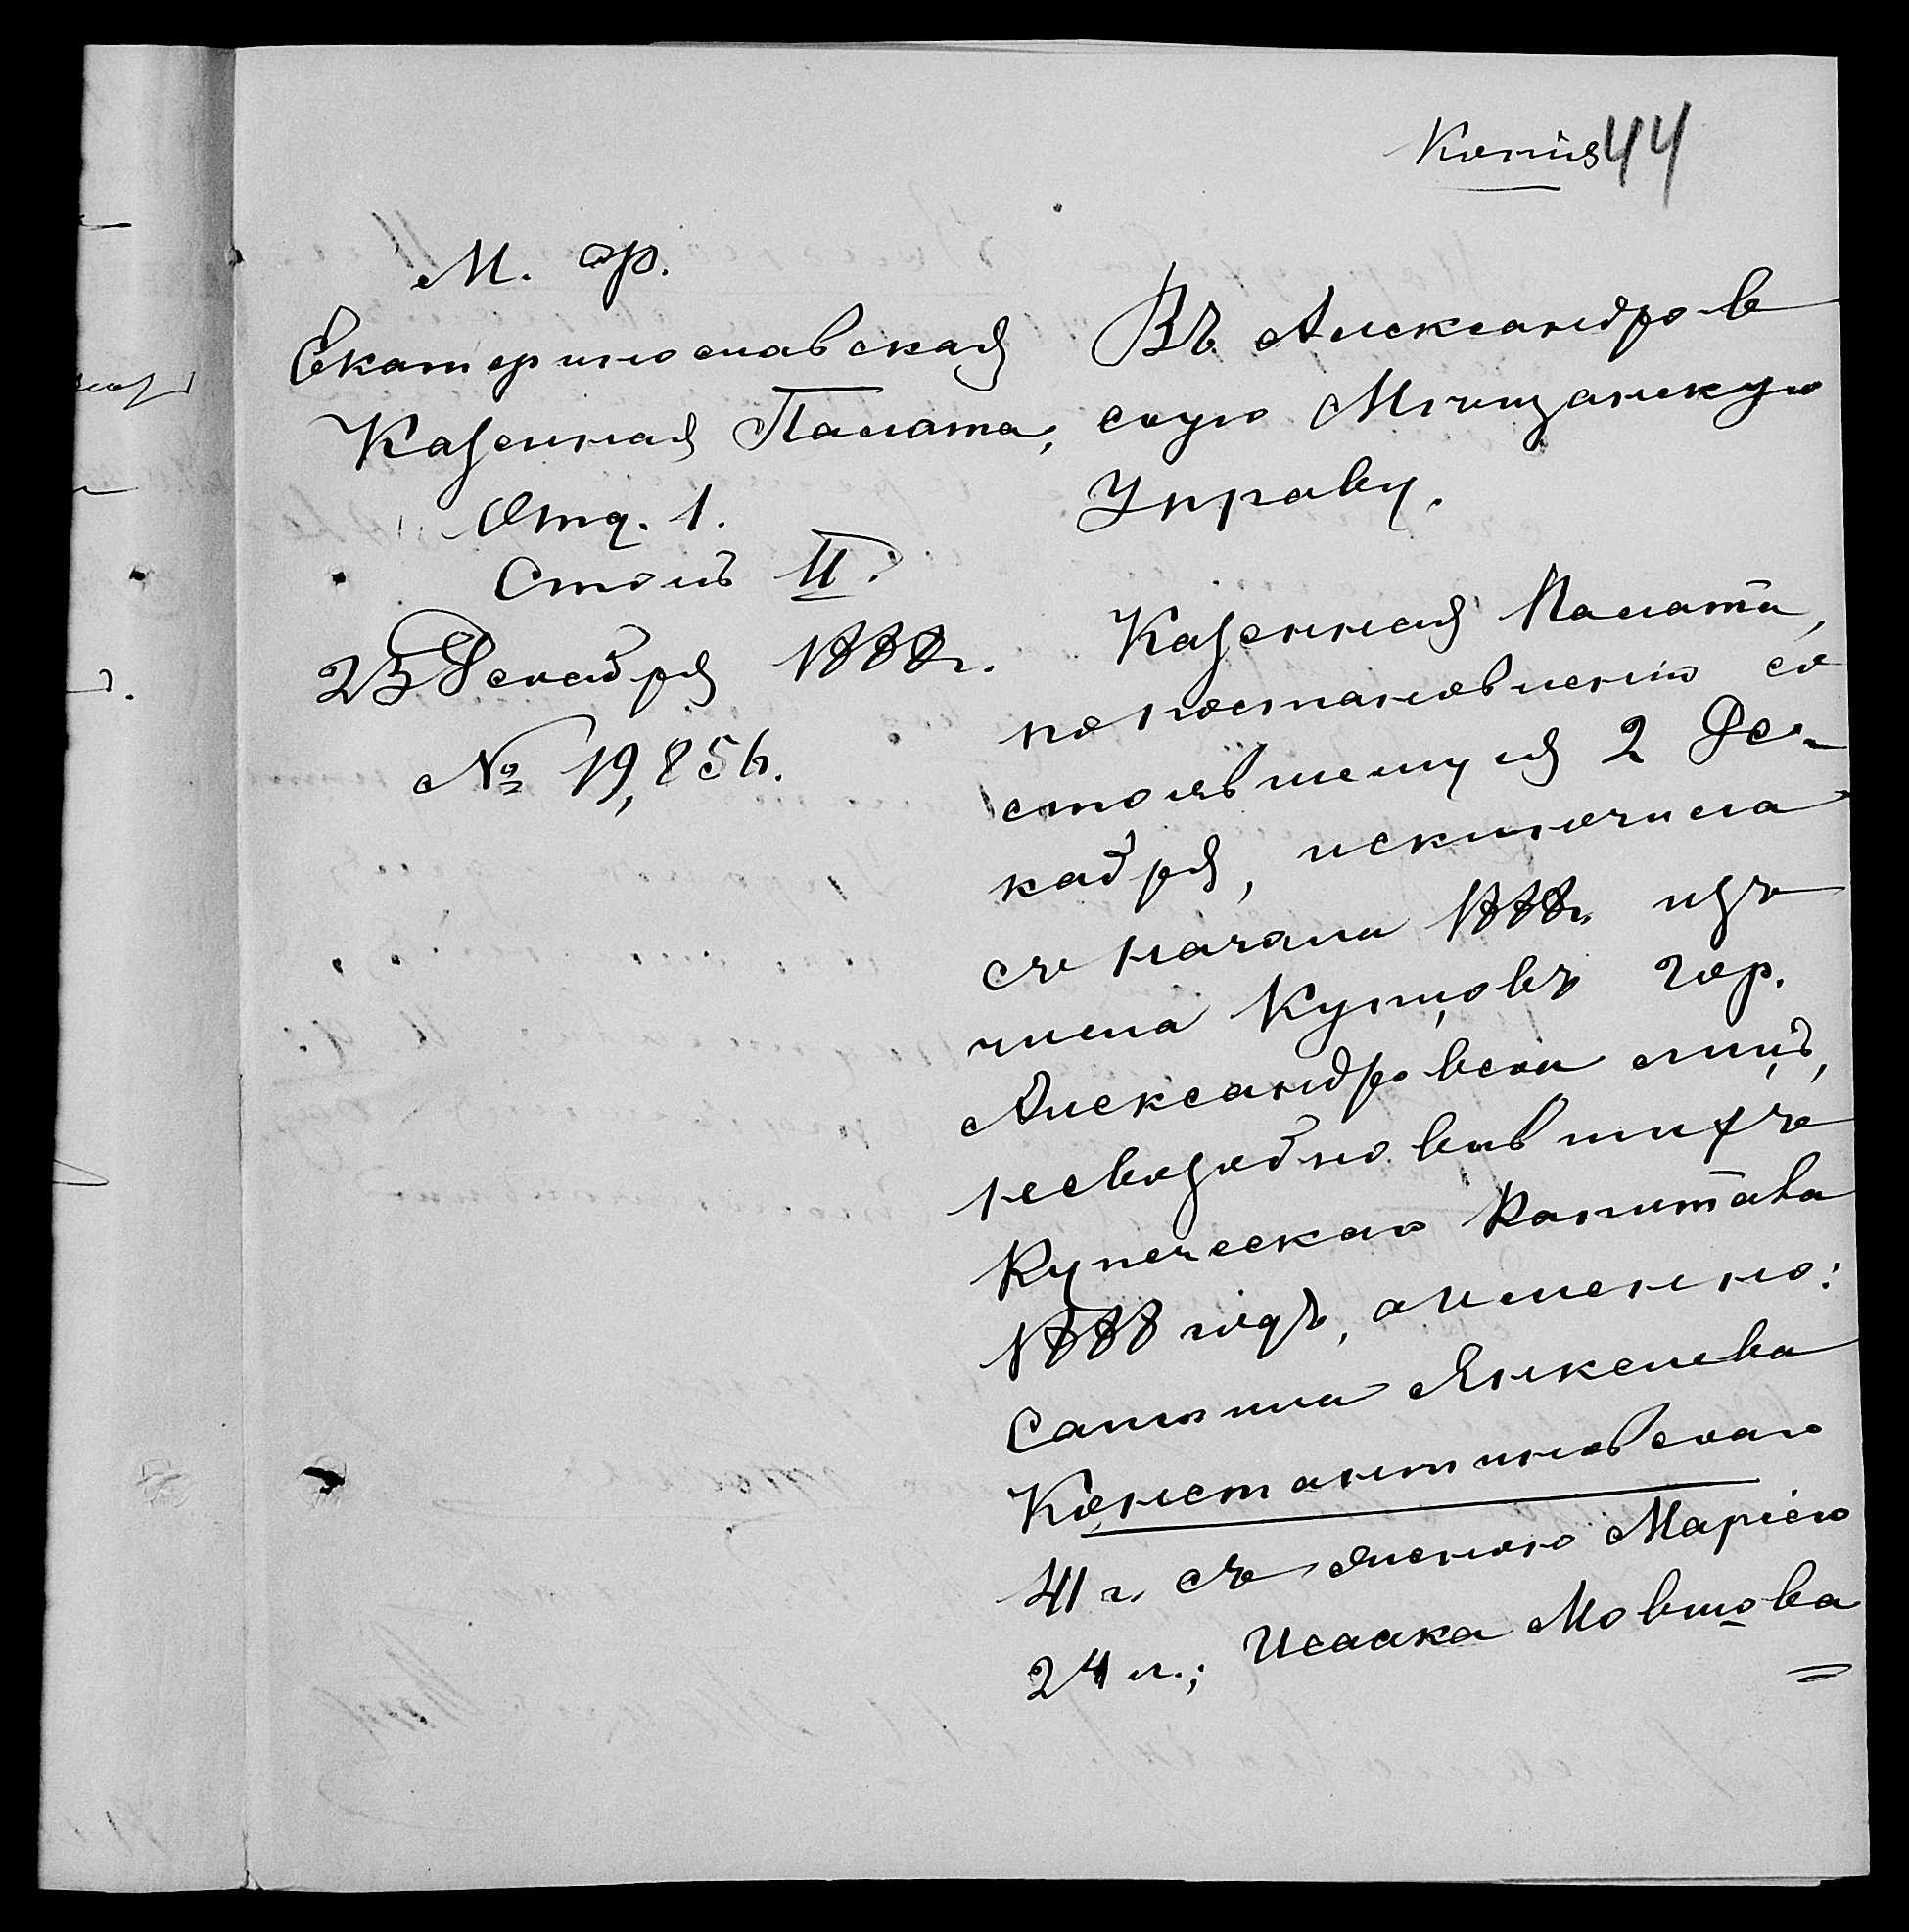 Копія 44
М. Ф.
Екатеринославская
Казенная Палата,
Отд. 1.
Столъ II.
23 Декабря 1888 г.
№ 19,856.
Въ Александров
скую Мѣщанскую
Управу.
Казенная Палата,
по постановленію со
стоявшемуся 2 Де-
кабря, исключила
съ начала 1888 г. изъ
числа Купцовъ гор.
Александровска лицъ,
невозобновившихъ
Купеческаго Капитала
1888 годъ, а именно:
Самуила Янкелева
Константиновскаго
41 г. съ женою Маріею
24 л.; Исаака Мовшова